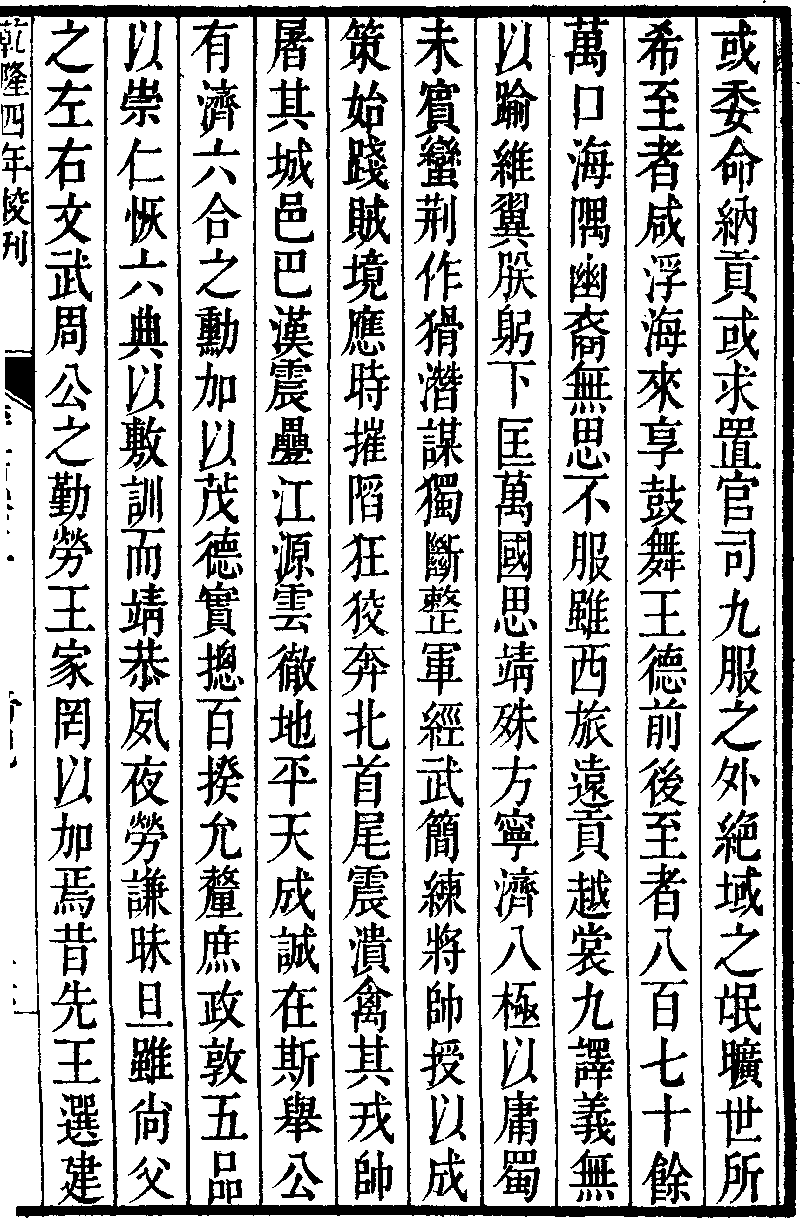 或委命納貢或求置官司九服之外絶域之氓曠世所
希至者咸浮海來享鼓舞王德前後至者八百七十餘
萬口海隅幽裔無思不服雖西旅遠貢越裳九譯義無
以踰維翼朕躬下匡萬國思靖殊方寧濟八極以庸蜀
未賓蠻荆作猾潛謀獨斷整軍經武簡練將帥授以成
策始踐賊境應時摧䧟狂狡奔北首尾震潰禽其戎帥
屠其城邑巴漢震疊江源雲徹地平天成誠在斯舉公
有濟六合之勳加以茂德實摠百揆允釐庶政敦五品
以崇仁恢六典以敷訓而靖恭夙夜勞謙昧旦雖尚父
之左右文武周公之勤勞王家罔以加焉昔先王選建
乾隆四年校刊